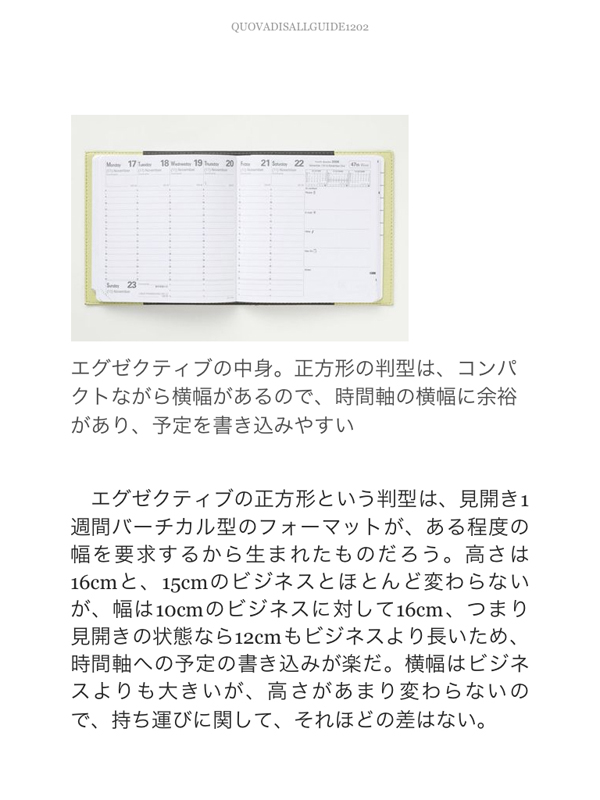 QUOVADISALLGUIDE1202
Monday 17 Tuesday 18 Wednesday 19 Thursday 20 Friday 21 Saturday 22
Sunday 23
エグゼクティブの中身。正方形の判型は、コンパ
クトながら横幅があるので、時間軸の横幅に余裕
があり、予定を書き込みやすい
エグゼクティブの正方形という判型は、見開き1
週間バーチカル型のフォーマットが、ある程度の
幅を要求するから生まれたものだろう。高さは
16cmと、15cmのビジネスとほとんど変わらない
が、幅は10cmのビジネスに対して16cm、つまり
見開きの状態なら12cmもビジネスより長いため、
時間軸への予定の書き込みが楽だ。横幅はビジネ
スよりも大きいが、高さがあまり変わらないの
で、持ち運びに関して、それほどの差はない。